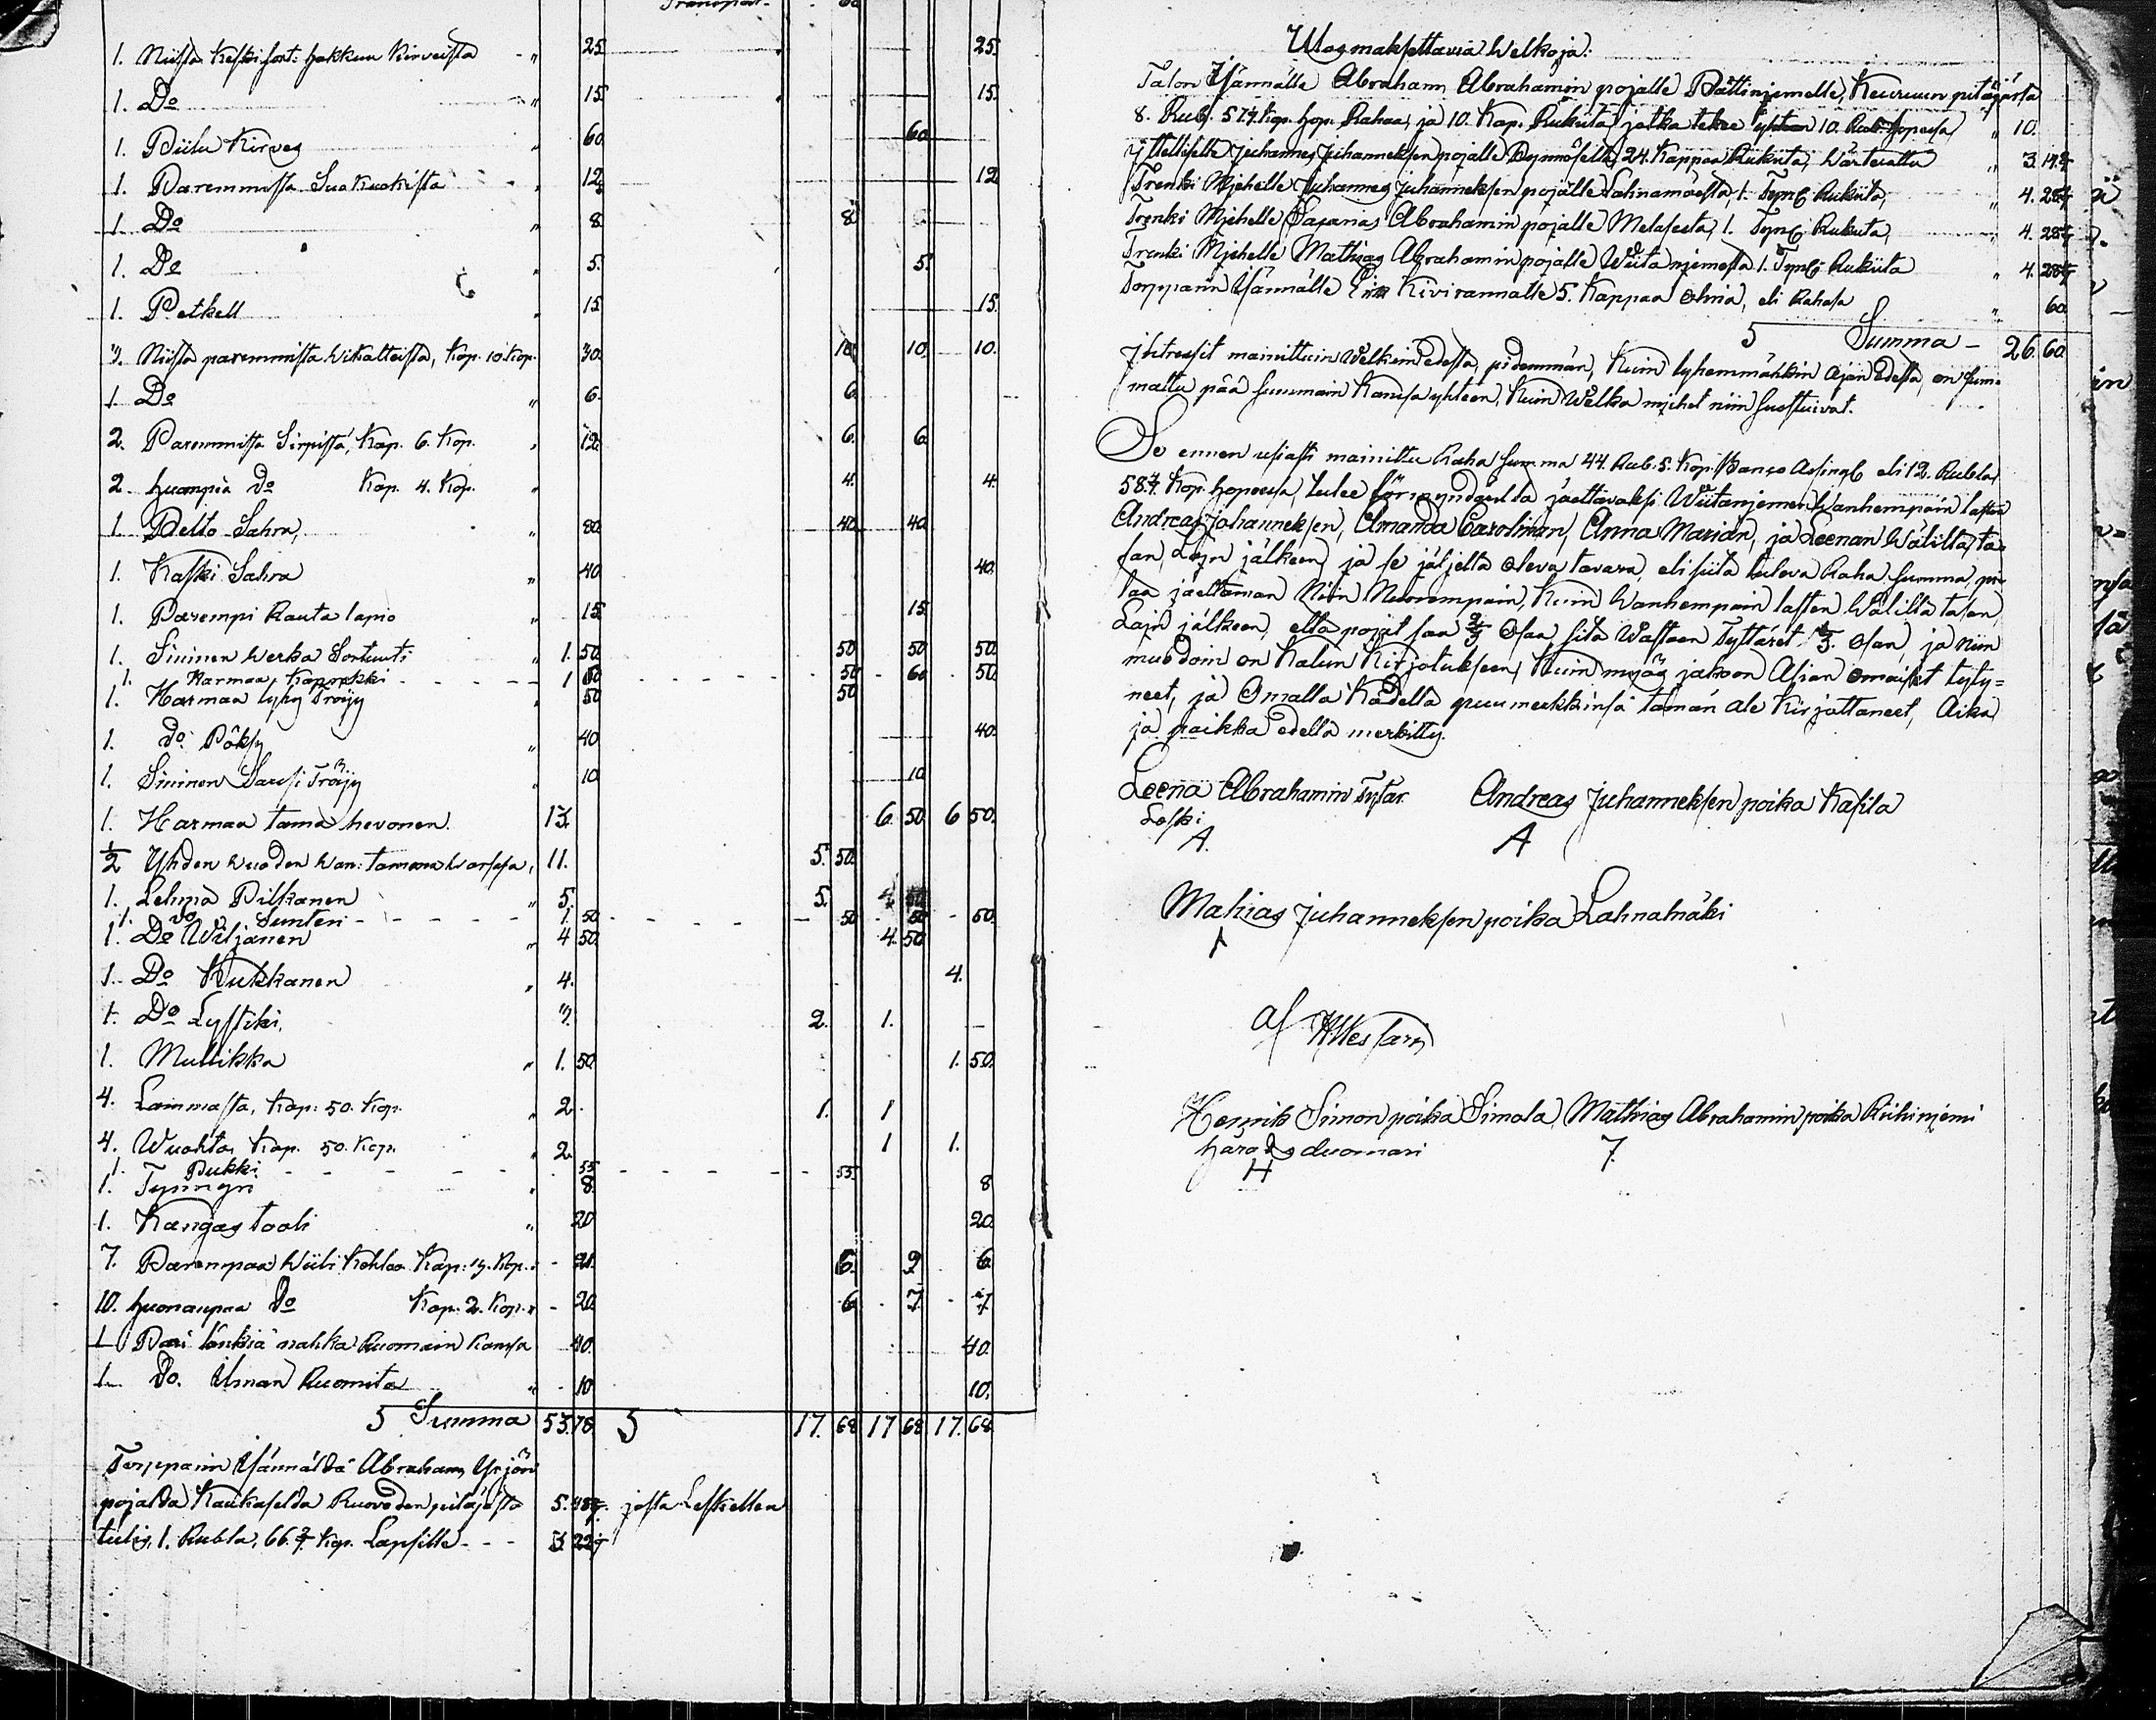 Transport - 60
1. Niistä Keski sort: hakkuu Kirveistä " 25. 25.
1. Do " 15. 15.
1. Piilu Kirves " 60. 60
1. Paremmista Suokuokista " 12. 12
1. Do " 8. 8.
1. Do " 5. 5.
1. Petkell " 15. 15.
3. Niistä paremmista Wikatteista, Kap. 10 Kop. 30. 10. 10. 10.
1. Do " 6. 6.
2. Paremmista Sirpistä, Kap. 6. Kop. " 12. 6. 6
2. huonpia Do Kap. 4. Kop. " 4. 4.
1. Pelto Sahra, " 80. 40. 40.
1. Kaski Sahra " 40 40.
1. Parempi Rauta lapio " 15. 15.
1. Sininen Verka Sortuuti " 1. 50. 50 50 50.
1. Harmaa Kapprokki - - - 1 60 50 60 50.
1. Harmaa lyhy Tröijy " 50 50
1. do: Pöksy " 40. 40.
1. Sininen Sarssi Tröijy " 10 10
1. Harmaa tama hevonen. 13. 6. 50 6 50.
1/2 Yhden wuoden wan: tamma warssa, 11. 5. 50.
1. Lehmä Pilkanen " 5. 5. 4. 50
1. do Sunteri - - - 1. 50 50 50 50.
1. Do Wiljanen " 4 50 4. 50
1. Do Kukkanen " 4. 4.
1. Do Lystiki, 3. 2. 1.
1. Mullikka " 1. 50. 1. 50.
4. Lammasta, Kap: 50. Kop. " 2. 1. 1
4. Wuohta, Kap. 50. Kop. " 2. 1 1.
1. Pukki - - - 55 55.
1. Tynnyri " 8. 8
1. Kangas tooli " 20 20.
7. Parempaa Wiili Kehloa Kap: 3. Kop. - 21. 6. 9. 6
10. huonanpaa Do Kap. 2. Kop. - 20. 6 7. 7
1. Pari länkiä nahka Ruomain Kanssa 40. 40.
1. Do. Ilman Ruomita " - 10 10.
S Summa 53. 78 S 17. 68 17 68 17. 68
Torpparin Isännäldä Abraham Yrjön
pojalda Kaukaselda Ruoveden pitäjästä 5. josta Leskellen
tulis, 1. Rubla, 66. Kop. Lapsille - - - 3. 22
Ulos maksettavia Welkoja:
Talon Isännälle Abraham Abrahamin pojalle Pättinjemelle, Keuruun pitäjästä
8. Rub. 57 Kop. hop. Rahaa, ja 10. Kap. Rukiita jotka tekee yhteen 10. Rub. hopeesa " 10.
Ittellisetle Juhannes Juhanneksen pojalle 24. Kappaa Rukiita, Wärteeratta " 3.
Trenki Miehelle Juhannes Juhanneksen pojalle Lahnamäestä, 1. Tyn: Rukiita, " 4. 28
Trenki Miehelle Abrahamin pojalle 1. Tyn: Rukiita, " 4. 28
Trenki Miehelle Mathias Abrahamin pojalle Wiitanjemestä 1. Tyn: Rukiita " 4. 28
Torpparin Isännälle Kivirannalle 5. Kappaa ohria, eli Rahasa " 60.
S Summa - 26. 60.
Intressit mainittuin Welkein edestä, pidemmän, Kuin lyhemmähkin ajan edestä, on sum-
mattu pää Summain Kanssa yhteen, Kuin Welka miehet niin suostuivat.
Se ennen usiasti mainittu Raha Summa 44. Rub. 5. Kop. Banco Assing: eli 12. Rubla
58. Kop. hopeesa, tulee förmyndäriltä jaettavaksi Wiitanjemen Wanhempain lasten
Andreas Johanneksen, Amanda Carolinan, Anna Marian, ja Leenan Wälillä, ta-
san, Lajn jälkeen, ja se jäljellä oleva tavara, eli siitä tuleva Raha Summa, pi-
tää jaettaman Niin Nuorempain, Kuin Wanhempain lasten Wälillä tasan,
Lajn jälkeen, että pojat saa 2/3 Osaa sitä Wastaan Tyttäret 1/3. Osan, ja Niin
muodoin on Kalun Kirjotukseen, Kuin myös jakoon Asian omaiset tyty-
neet, ja Omalla Kädellä puumerkkinsä tämän ale Kirjottaneet, Aika
ja paikka edellä merkitty.
Leena Abrahamin Tytär Andreas Juhanneksen poika Kasila
Leski
A. A
Mahias Juhanneksen poika Lahnalmäki
af
Henrik Simon poika Simola, Mathias Abrahamin poika Riihinjemi
härads duomari
H 7.